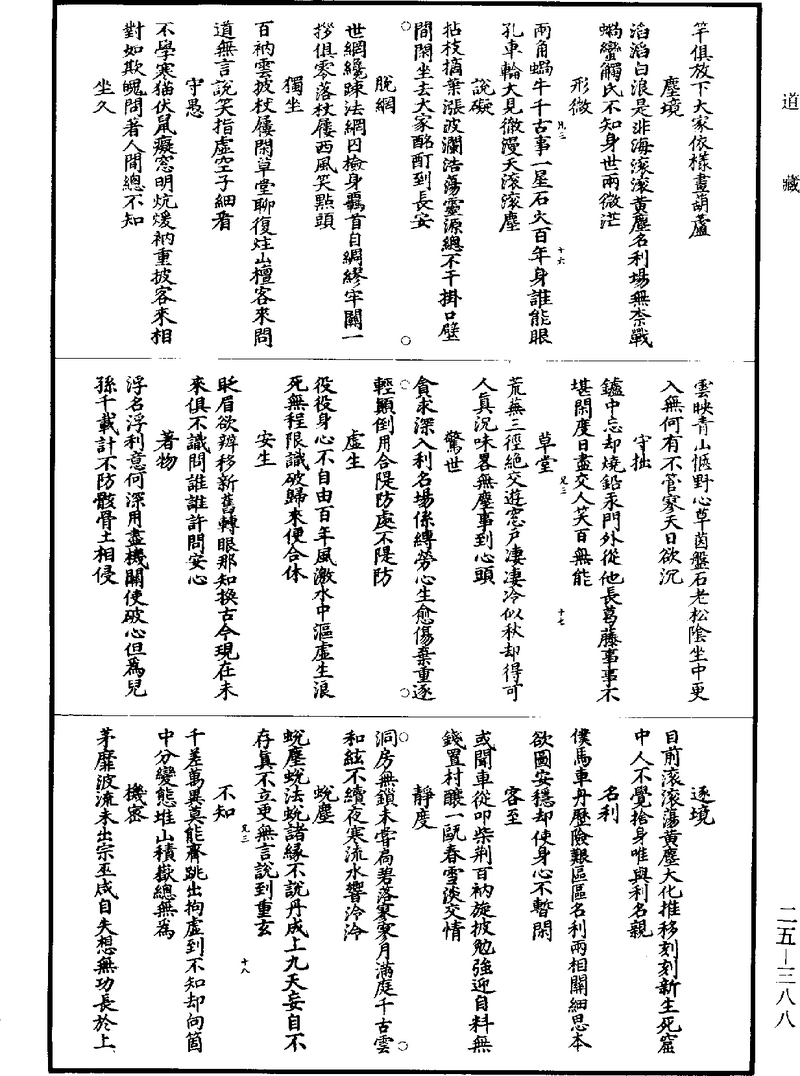 道藏
竿俱放下大家依樣畫葫蘆
塵境
滔滔白浪是非海滚滚黃塵名利場無柰戰
蝸蠻觸氏不知身世兩微茫
形微
兩角蝸牛千古事一星石火百年身誰能眼
孔車輪大見微漫天滚滚塵
說礙
拈枝摘葉漲波瀾浩蕩靈源總不干掛口壁
間閑坐去大家酩酊到長安
脫網
世網纔踈法網囚檢身羈首自綢繆牢關一
拶俱零落杖屨西風笑點頭
獨坐
百衲雲披杖屨閑草堂聊復炷山檀客來問
道無言說笑指虛空子細看
守愚
不學寒猫伏鼠癡窓明炕煖衲重披客來相
對如欺魄問著人間總不知
坐久
雲映青山愜野心草茵盤石老松陰坐中更
入無何有不管寥天日欲沉
守拙
鑪中忘却燒鉛汞門外從他長葛藤事事不
堪閑度日盡交人笑百無能
草堂
荒蕪三徑絶交遊窓戶凄凄冷似秋却得可
人真況味畧無塵事到心頭
驚世
貪求深入利名場係縛勞心生愈傷棄重逐
輕顚倒用合隄防處不隄防
虛生
役役身心不自由百年風激水中漚虛生浪
死無程限識破歸來便合休
安生
眨眉欲辨移新舊轉眼那知換古今現在未
來俱不識問誰誰許問安心
著物
浮名浮利意何深用盡機關使破心但為兒
孫千載計不防骸骨土相侵
逐境
目前滚滚蕩黃塵大化推移刻刻新生死窟
中人不覺捨身唯與利名親
名利
僕馬車丹歷險艱區區名利兩相關細思本
欲圖安穩却使身心不暫閑
客至
或聞車從叩柴荆百衲旋披勉強迎自料無
錢置村釀一甌春雪淡交情
靜度
洞房無鎖未嘗扃碧落寥寥月滿庭千古雲
和絃不續夜寒流水響泠泠
蛻塵
蛻塵蛻法蛻諸緣不說丹成上九天妄自不
存真不立更無言說到重玄
不知
千差萬異莫能齊跳出拘虛到不知却向箇
中分變態堆山積嶽總無為
機密
茅靡波流未出宗巫咸自失想無功長於上
二五—三八八